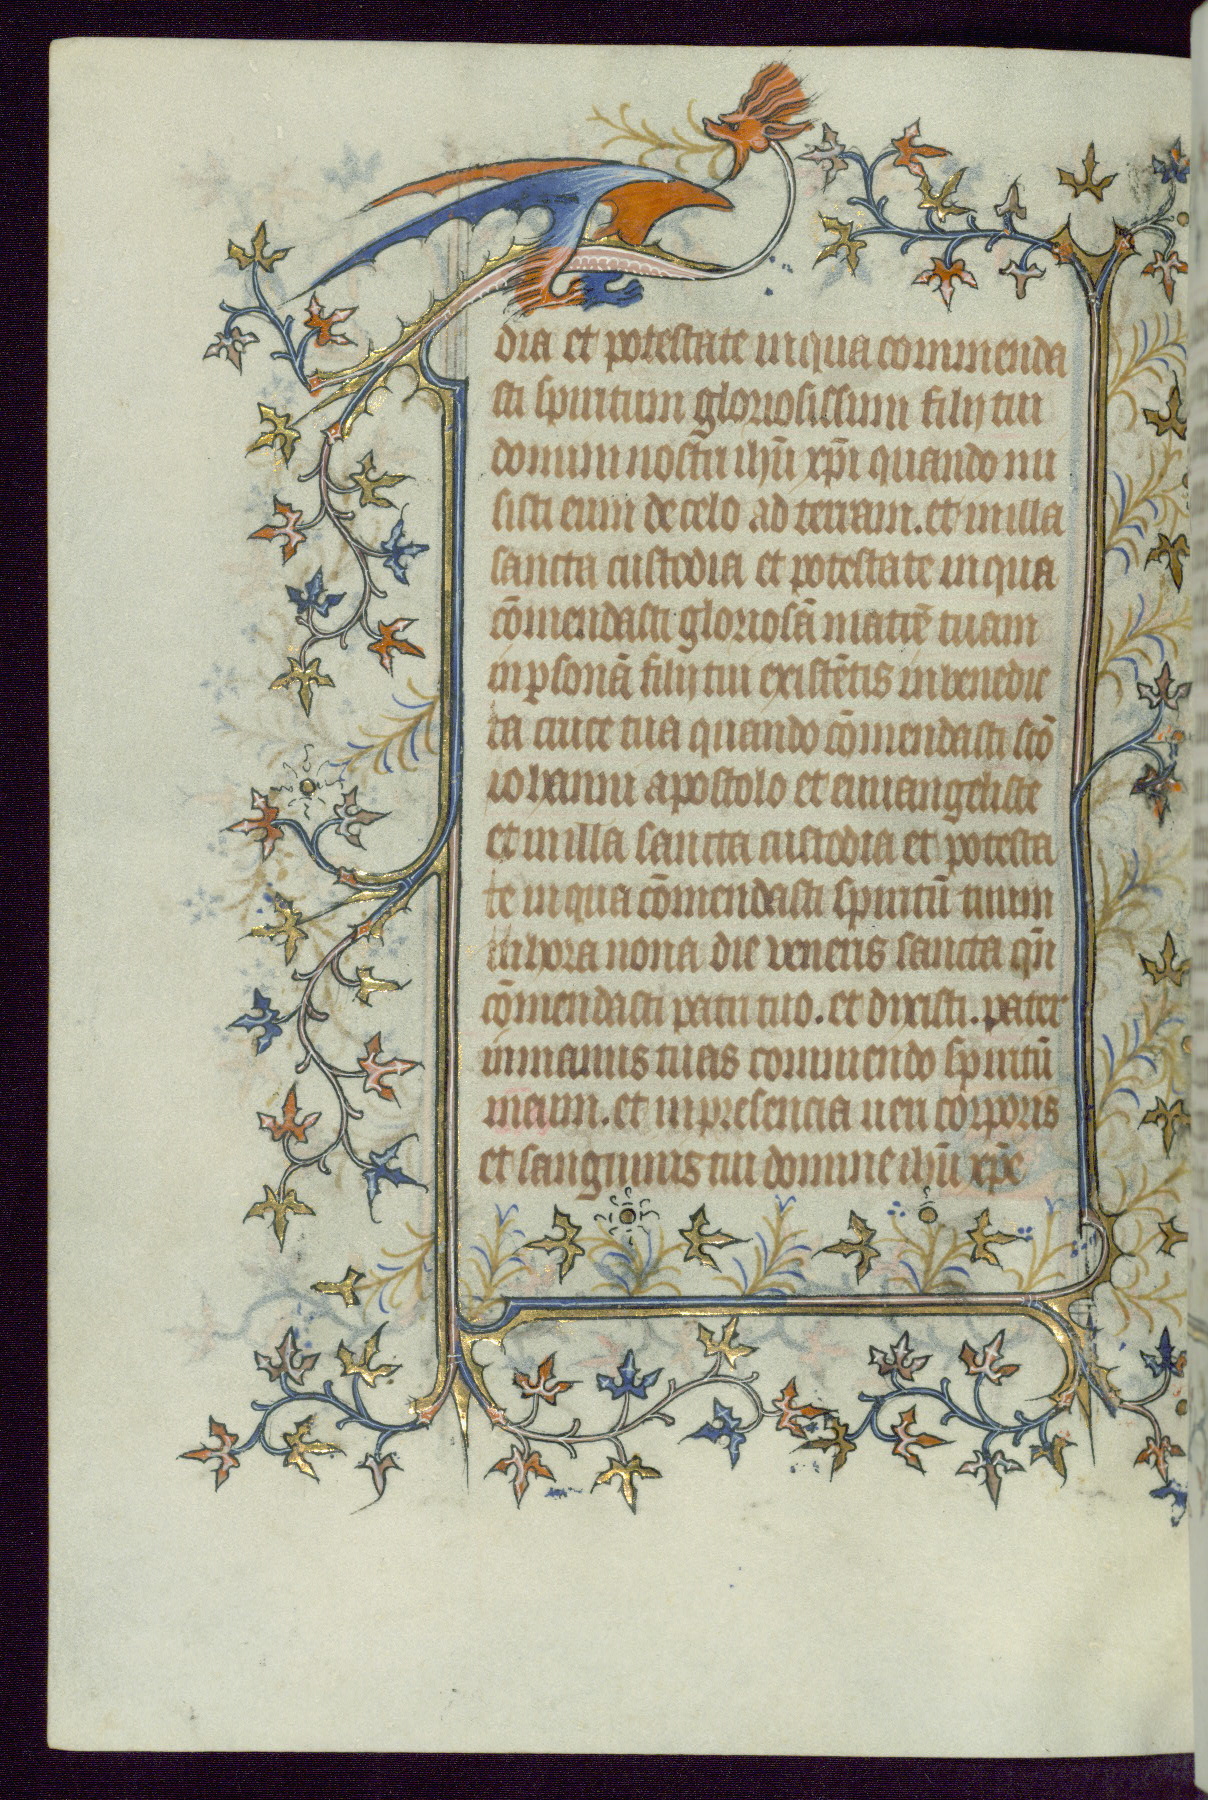 dia et potestate in qua commenda
sti spiritum gloriosissimi filij tui
domini nostri ihū xp̄i quando mi
sisti eum de celo ad terram. et in illa
sancta custodia et potestate in qua
cōmendasti gloriosā matrē tuam
in ꝑsonā filij tui existētis in benedic
ta cruce tua quando cōmendasti scō
iohanni apostolo et euuangeliste
et in illa sancta custodia et potesta
te in qua cōmendasti spiritū tuum
in hora nona die veneris sancta qn̄
cōmendasti patri tuo. et dixisti. pater
in manus tuas commendo spiritū
meum. et in presencia ueri corporis
et sanguinis tui domine ihū xp̄e